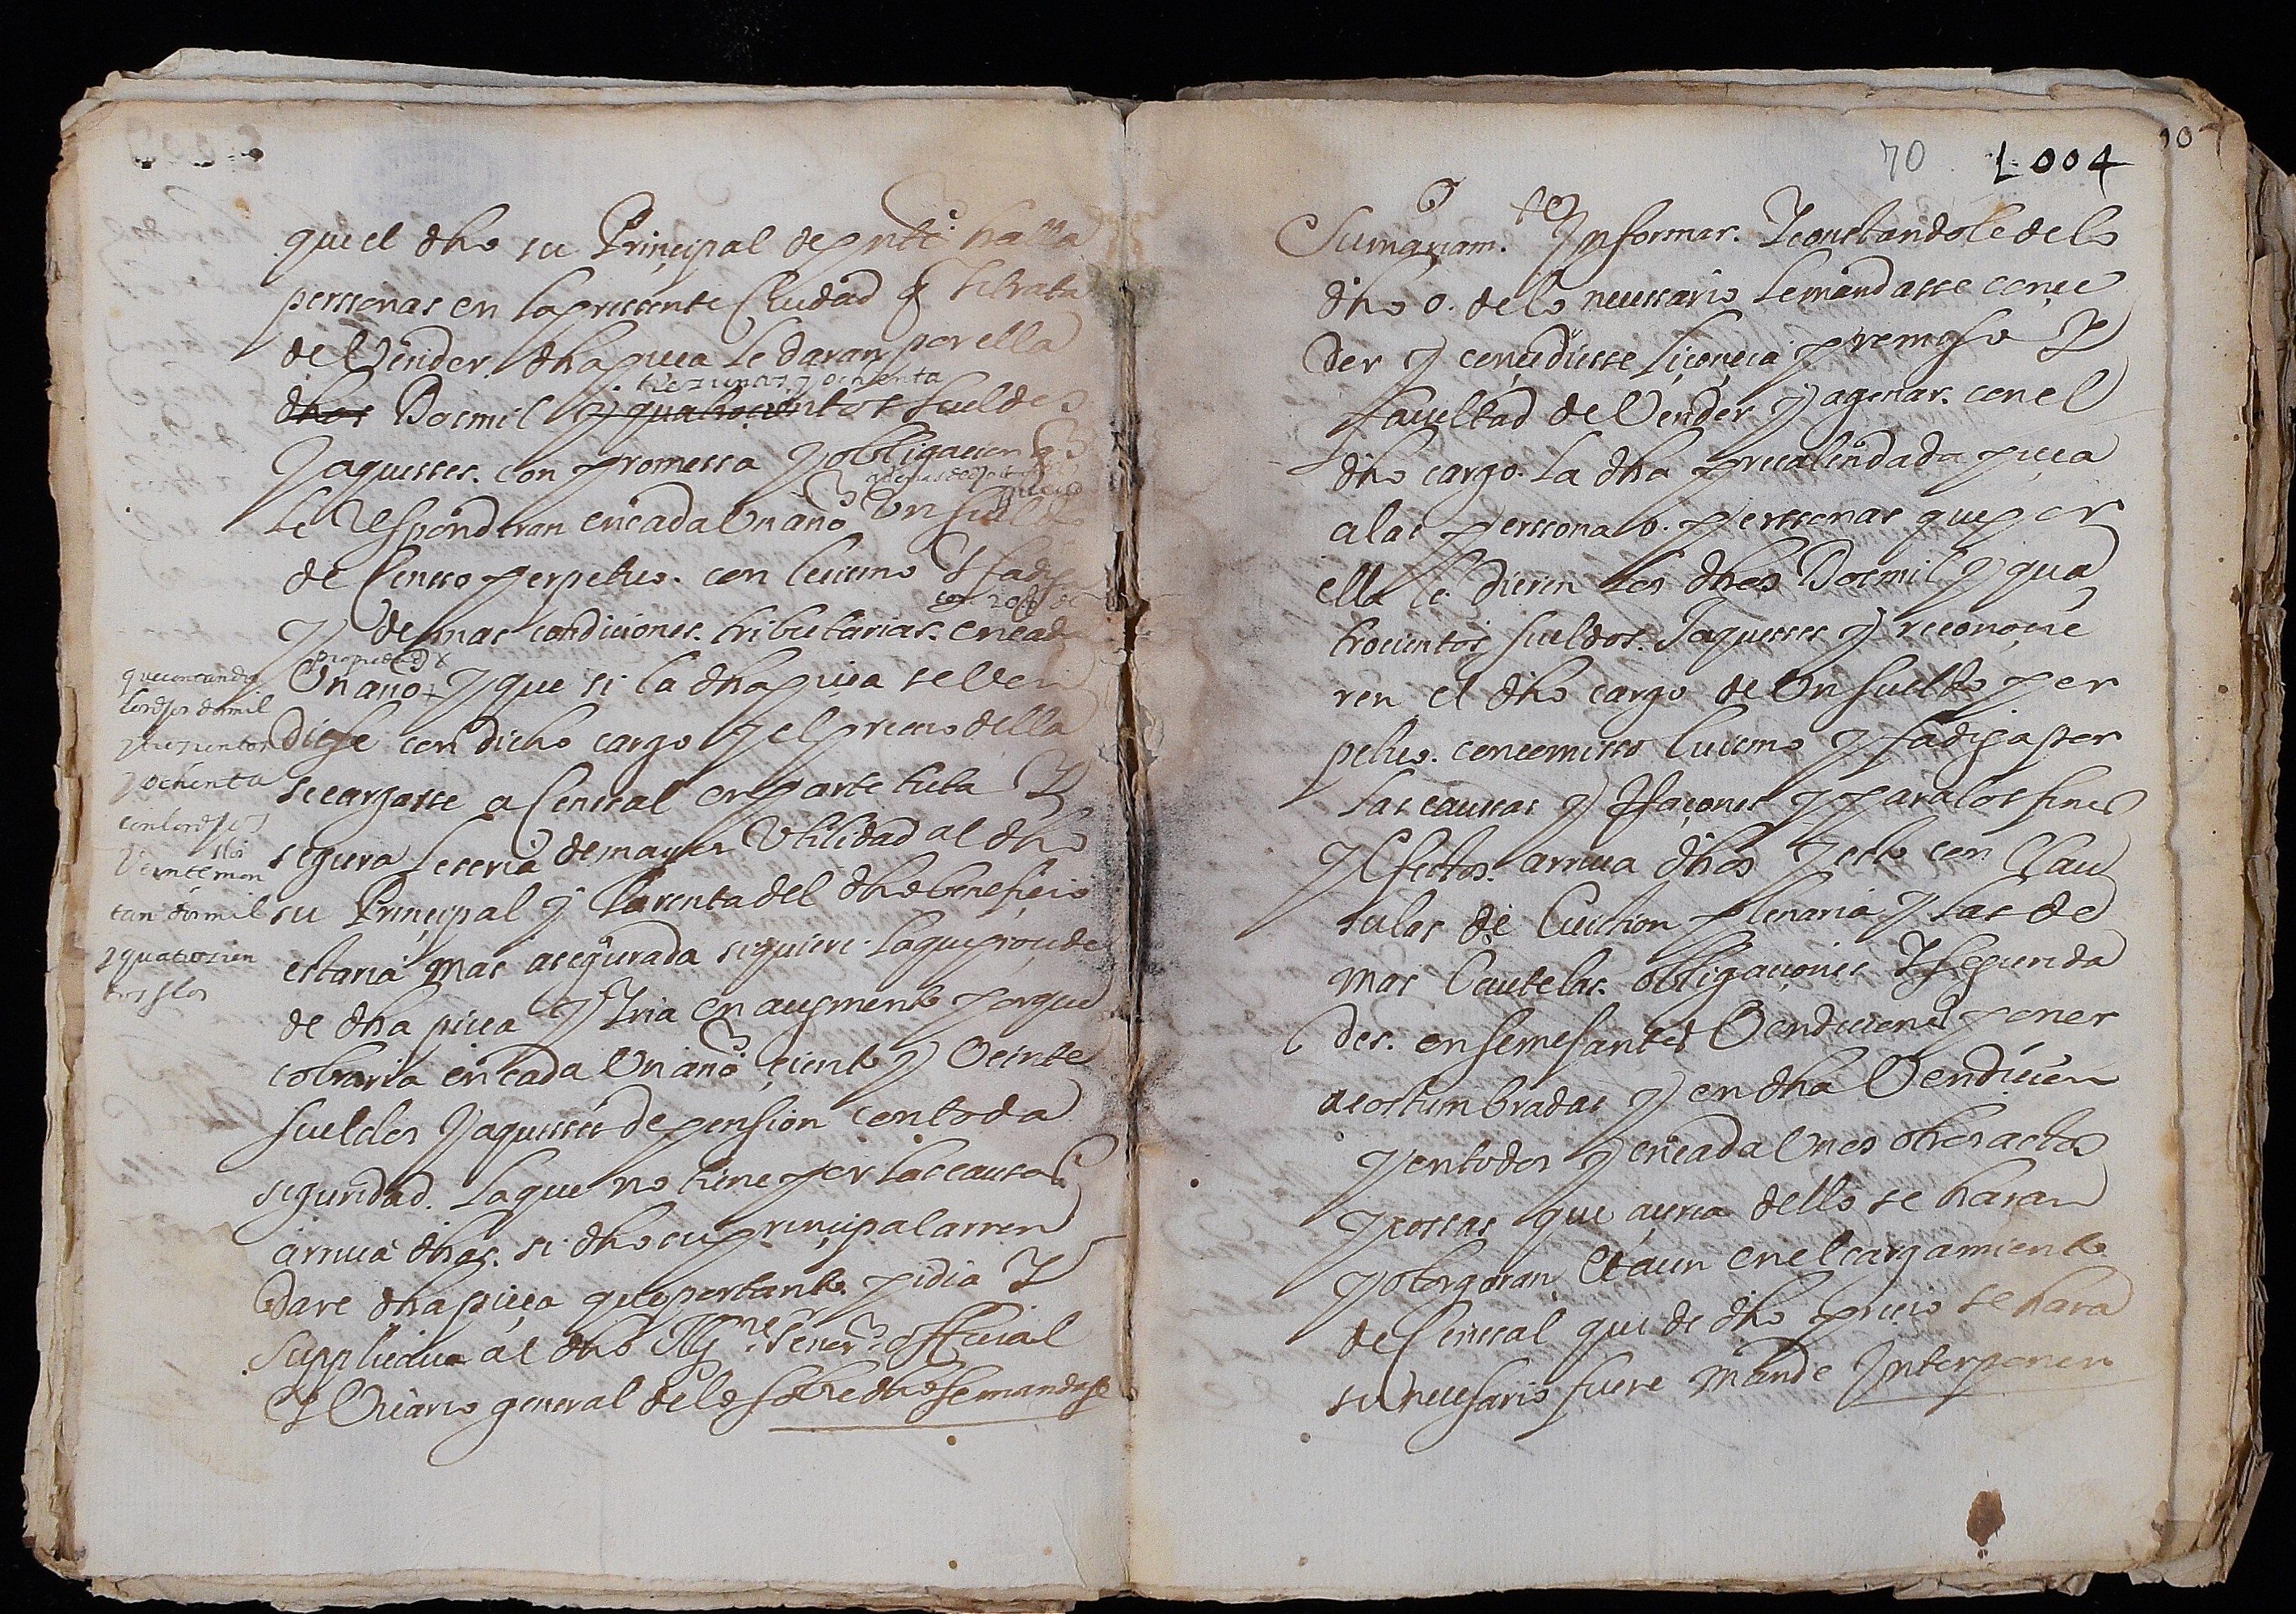 que el dho su Principal de pnte halla
perssonas en la pressente Ciudad q̃ si trata
de Vender dha pieça le daran por ella
dhos Dosmil trezientos y ochenta y quatrocientos sueldos
Jaquesses. con promessa y obligacion q̃
le Responderan en cada Un año Un sueldo
de Censso perpetuo. con luismo y fadiga
y demas condiciones. tributarias. en cada
Un año, y que si la dha pieça se Ven
diesse con dicho cargo y el precio della
se cargasse a Censsal en parte tuta Y
segura le seria de mayor Utilidad al dho
su Principal y la renta del dho beneficio
estaria mas asegurada siquiere la que proçide
de dha pieça y Iria en augmento porque
cobraria en cada Un año çiento y Veinte
sueldos Jaquesses de pension con toda
seguridad. la que no tiene por las causas
arriua dhas. si dho su prinçipal arren
dare dha pieça que portanto pidia Y
supplicaua al dho Illme Señor official
Y Vicario general de lo sobredho se mandasse
que contando
los dhos dosmil
y trezientos
y ochenta
con los dhos
Veinte slos
montan dosmil
y quatrozien
tos slos
70 L 004
10
Sumariamte Informar. Y constandole de lo
dho o. de lo necessario le mandasse conçe
der y conçediesse liçençia y permisso Y
facultad de Vender y agenar. con el
dho cargo. la dha precalendada pieça
a las perssona o. perssonas que por
ella le dieren los dhos Dosmil y qua
trocientos sueldos. Jaquesses y reconoçie
ren el dho cargo de Un sueldo per
petuo. con comisso luismo y fadiga por
las caussas y Raçones y para los fines
y Efectos. arriua dhos y esto con Clau
sulas de Euiction plenaria y las de
mas Cautelas. obligaçiones Y segurida
des. en semejantes Vendiciones poner
acostumbradas y en dha Vendicion
y en todos y en cada Unos otros actos
y cossas que açerca dello se haran
y otorgaran, Et aun en el cargamiento
de Censsal que de dho preçio se hara
si necessario fuere mande Interponer